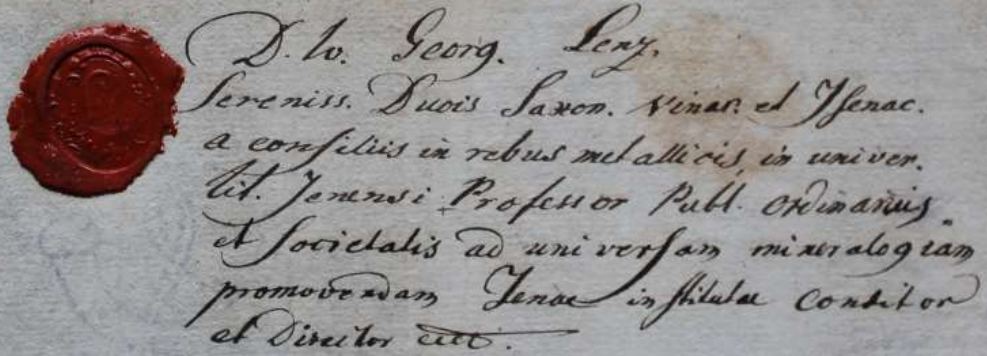 D. Io. Georg. Lenz.
Sereniss. Ducis Saxon. Vinar. et Isenac.
a consiliis in rebus metallicis, in univer.
sit. Jenensi Professor Publ. Ordinarius,
et Societatis ad universam mineralogiam
promovendam Jenae institutae Conditor
et Director